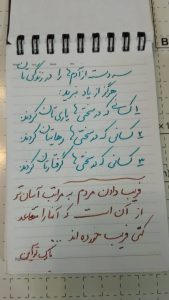 سه دسته از آدمها را در زندگی تان
هرگز از یاد نبرید:
۱ کسانی که در سختی ها یاری تان کردند.
۲ کسانی که در سختی ها رهایتان کردند.
۳ کسانی که در سختی ها گرفتارتان کردند.
فریب دادن مردم به مراتب آسان تر
از آن است که آنها را متقاعد
کنی فریب خورده اند ...
مارک تواین